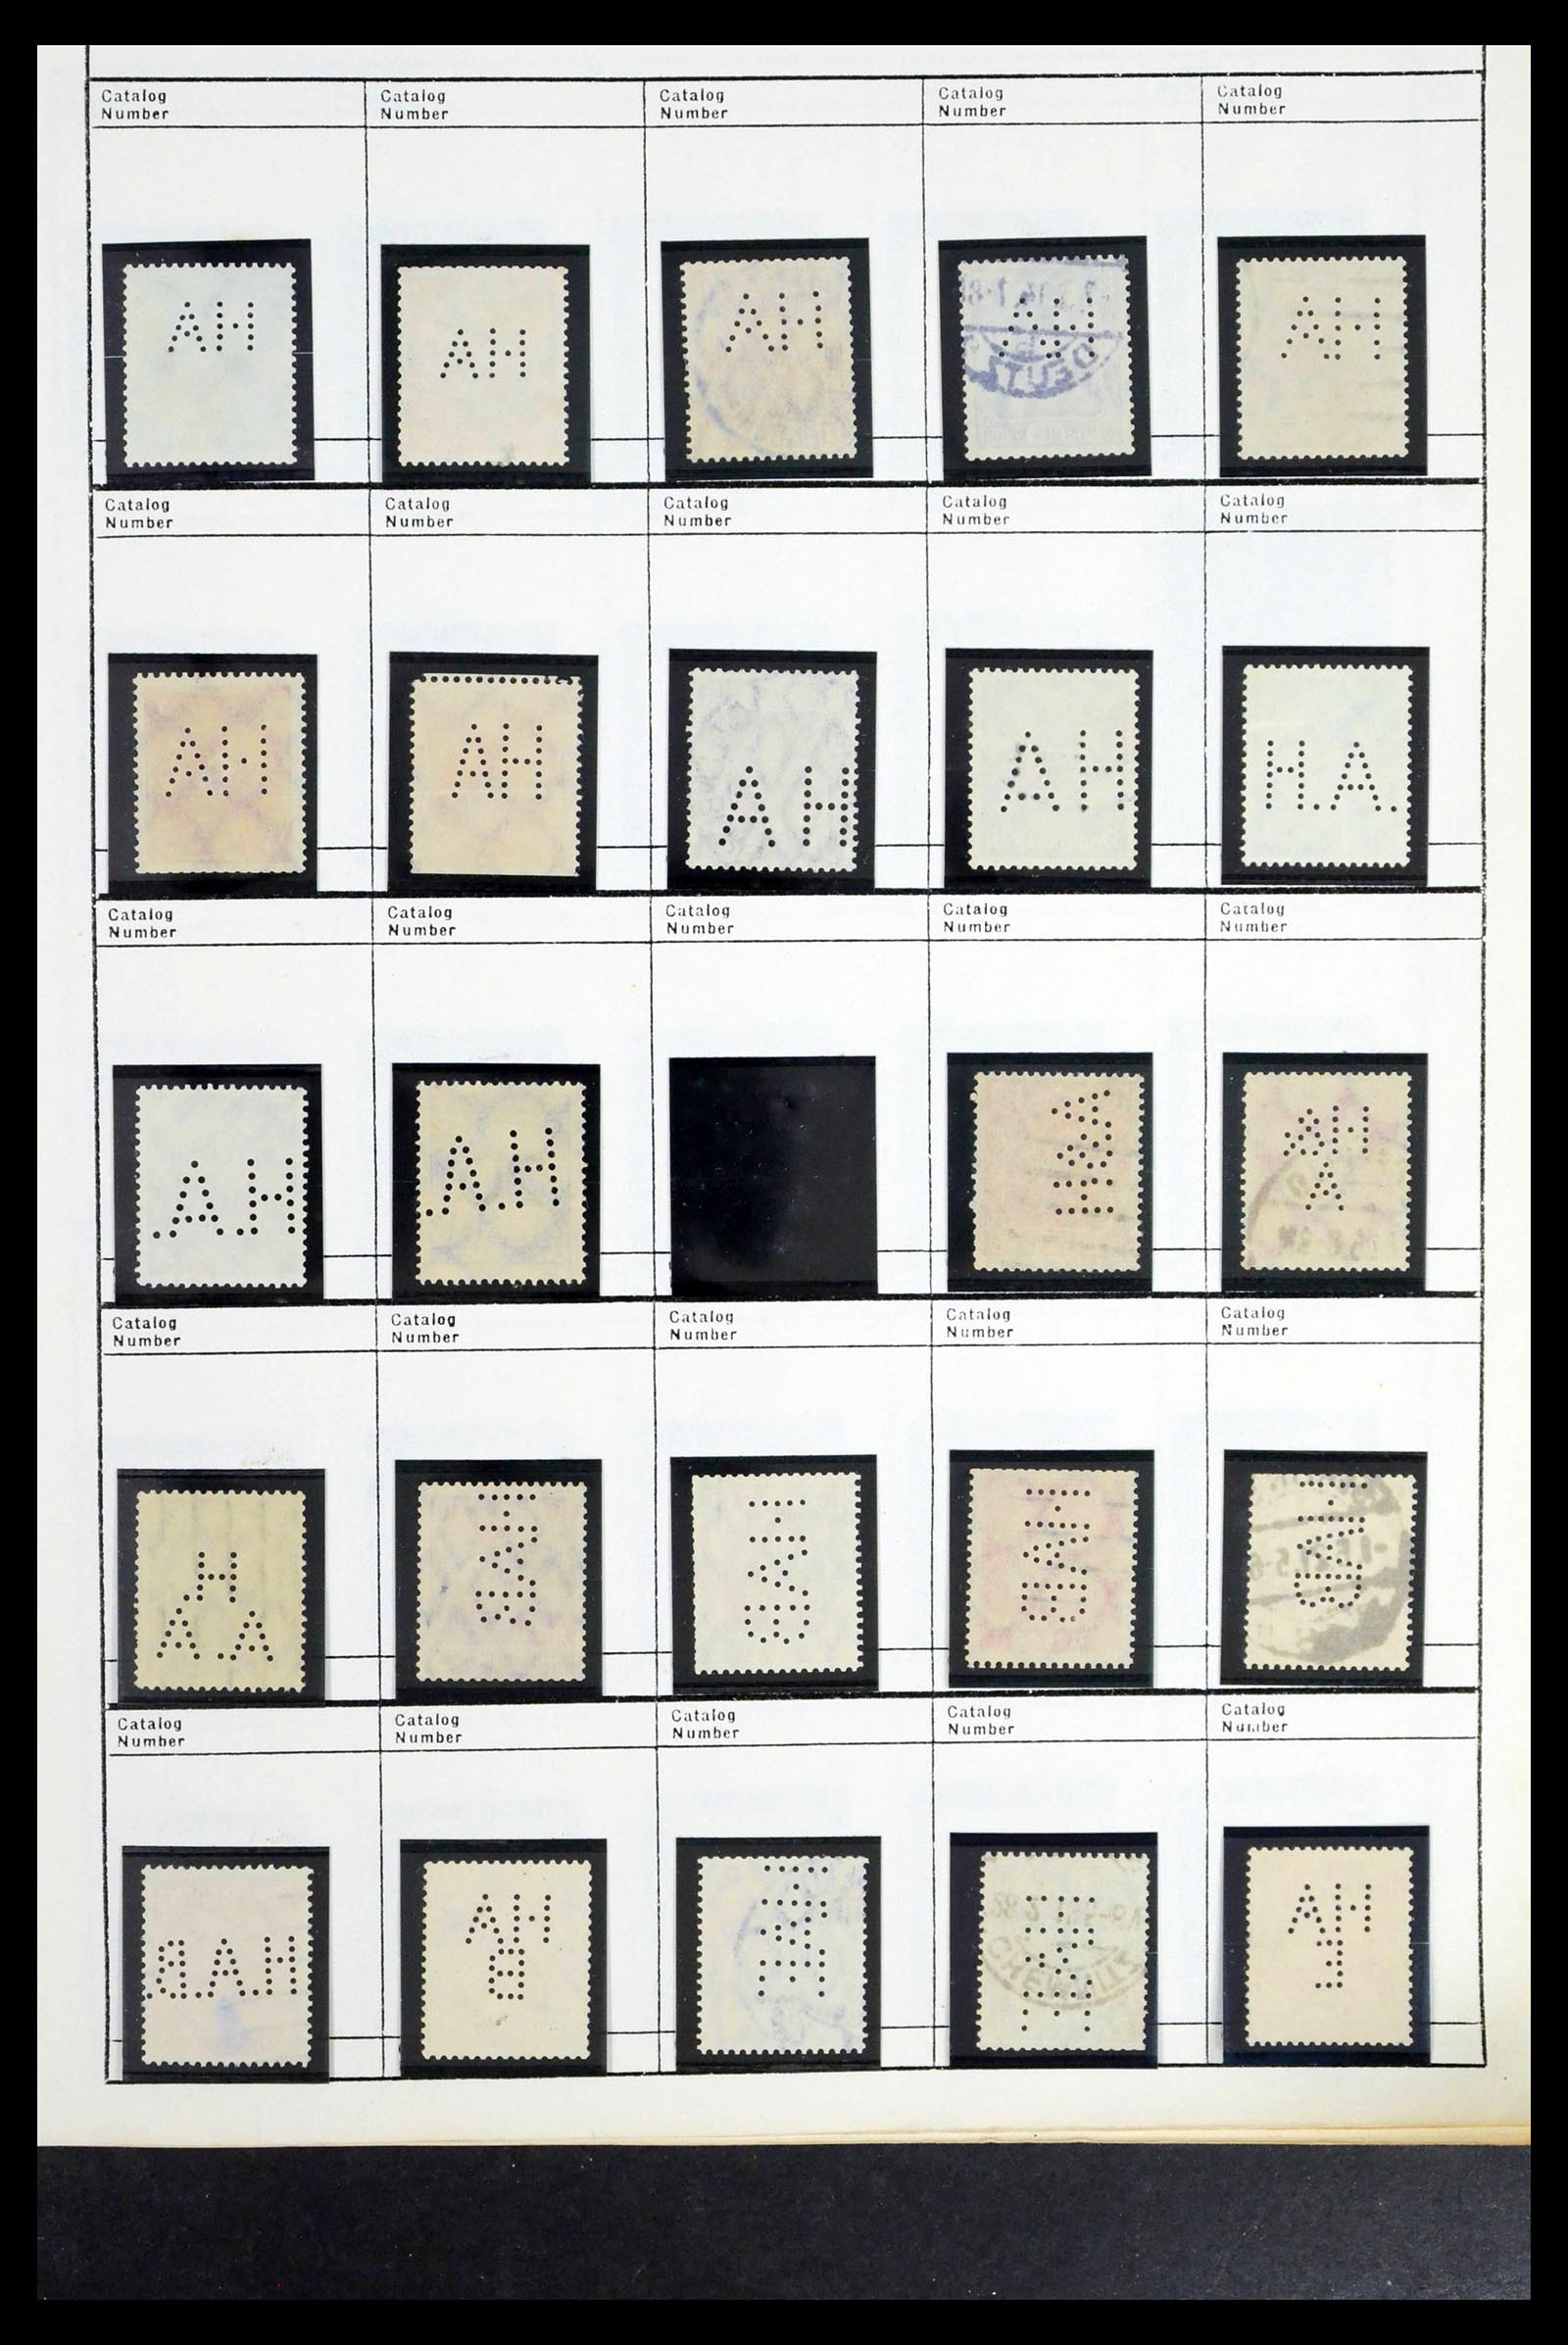 Catalog Number
Catalog Number
Catalog Number
Catalog Number
Catalog Number
AH
AH
AH
AH
AH
Catalog Number
Catalog Number
Catalog Number
Catalog Number
Catalog Number
AH
AH
AH
AH
H.A.
Catalog Number
Catalog Number
Catalog Number
Catalog Number
Catalog Number
.A.H
.A.H
AH
A
Catalog Number
Catalog Number
Catalog Number
Catalog Number
Catalog Number
H.
A.A
HAB
HAB
HAB
HAB
Catalog Number
Catalog Number
Catalog Number
Catalog Number
Catalog Number
H.A.B.
AH
B
HAE
CHEMNITZ
AH
E